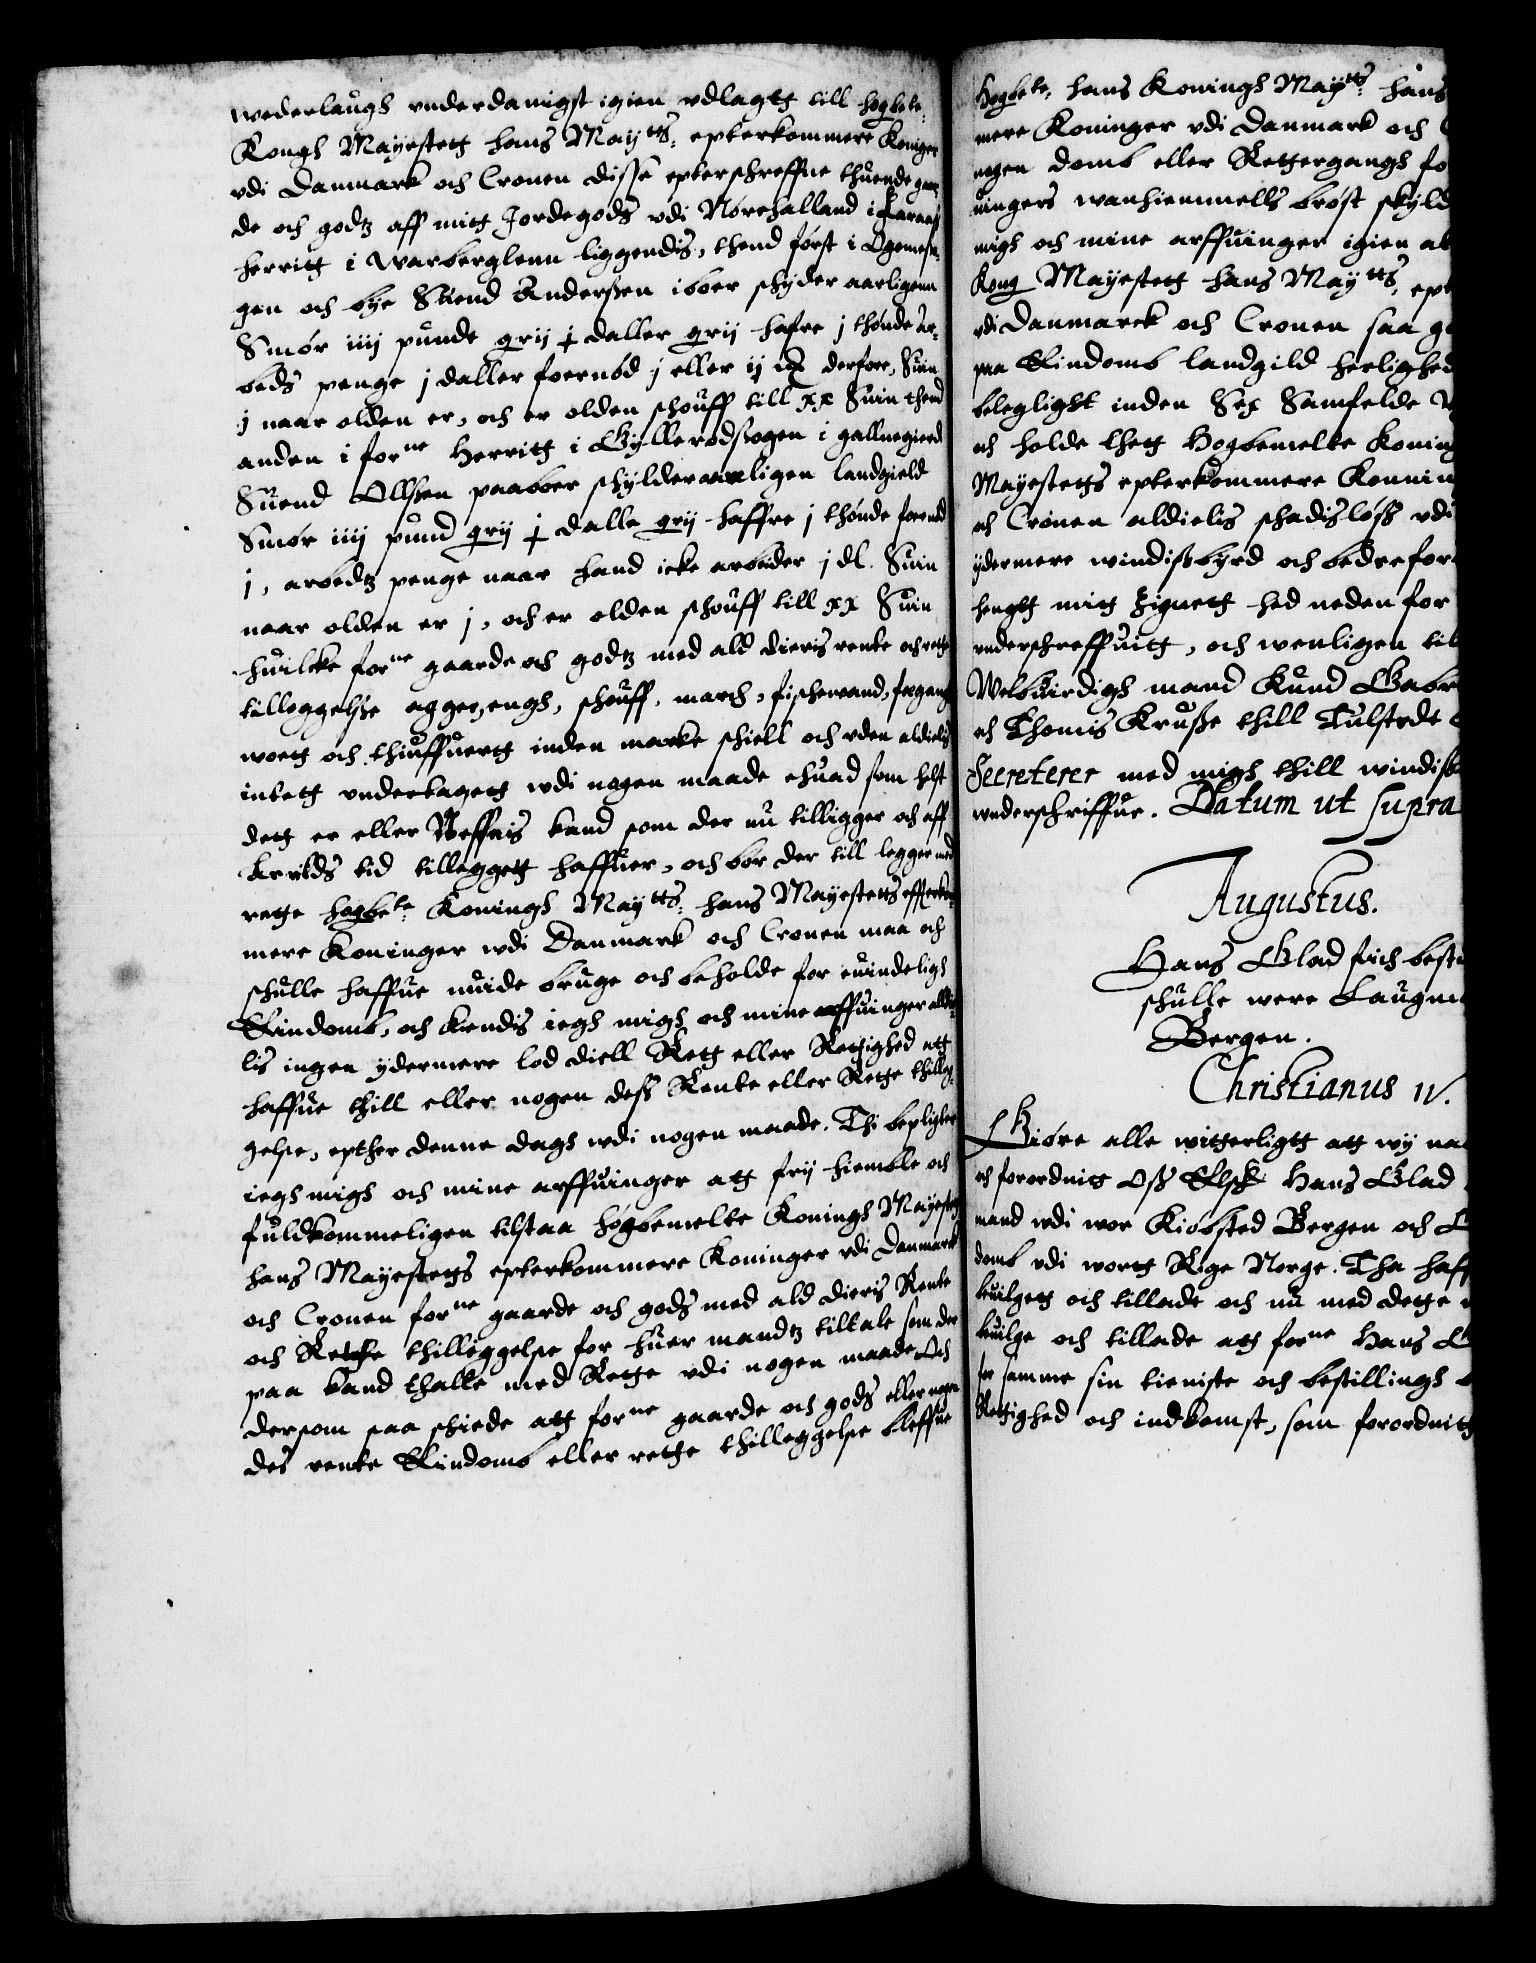 wederlaugh vnderdanigst igien vdlagtt till hogbete:
Kongh Mayestett hans Maytts: epterkommere Koniger
vdi Danmark och Cronen disse epterschreffne thuende gaar
de och godtz aff mitt Jordegods vdi Nørehalland i Faraas
herritt i Warberglenn liggendis, thend først i Ogemesu
gen och bye Suend Anderssen iboer schyder aarligenn
Smør iiij punde grij j daller grij hafre j thønde ar-
beds penge j daller foernød j eller ij derfore, Suin
j naar olden er, och er olden schouff till xx Suin thend
anden i forne Herritt i Gyllerødsogen i gallnegierd
Suend Ollssen paaboer schylder aarligen landgield
Smør iiij pund grij j dalle grij haffre j thønde foernød
j, arbedtz penge naar hand icke arbeider j dl. Suin
naar olden er j, och er olden schouff till xx Suin
huilcke forne gaarde och godtz med ald dieris rente och rette
tilleggelsse agger, engh, schouff, march, fischewand, fægang
woett och thiuffuertt inden marke schiell och vden aldielis
intett vndertagett vdi nogen maade ehuad som helst
dett er eller Neffnis kand som der nu tilligger och aff
Arrilds tid tilleggett haffuer, och bør der till legge med
rette hogbete: Konings Maytts: hans Mayestetts effterkom
mere Koninger vdi Danmark och Cronen maa och
schulle haffue nuide bruge och beholde for euindeligh
Eiindomb, och kiendis iegh migh och mine arffuinger aldie
lis ingen ydermere lod diell Rett eller Rettighed att
haffue thill eller nogen dess Rente eller Rette thilleg
gelse, epther denne dagh vdi nogen maade. Thi bepligter
iegh migh och mine arffuinger att frij hiemble och
fuldkommeligen tilstaa høgbemelte Konings Mayestett
hans Mayestetts epterkommere Koninger vdi Danmark
och Cronen forne gaarde och gods med ald dieris Rente
och Rette thilleggelse for huer mandtz tiltale som der
paa kand thalle med Rette vdi nogen maade Och
dersom saa schiede att forne gaarde och gods eller nogen
des rente Eiindomb eller rette thilleggelse bleffue
Hogbete: hans Konings Maytts: hans
mere Koninger vdi Danmark och
nogen domb eller Rettergangh fo
uingers wanhiemmells brøst skyld
migh och mine arffuinger igien at
Kong Mayestett hans Maytts, ept
vdi Danmarck och Cronen saa g
paa Eiindomb landgild herlighed
beleglight inden Sex Samfelde
och holde thett Hogbemelte Koning
Mayestetts epterkommere Konnin
och Cronen aldielis schadisløss vdi
ydermere windissbyrd och bedre for
henght mitt Zignett hed neden for
vnderschreffuitt, och wenligen til
Welbwirdigh mand Knud Gabr
och Thomis Krusse thill Tulstede
Secreterer med migh thill windisb
wnderschriffue. Datum ut supra
Augustus.
Hans Glad fich besti
schulle were Laugm
Bergen.
Christianus IV.
Giøre alle witterligtt att wy na
och forordnitt Oss Elsk Hans Glad
mand vdi wor Kiøbsted Bergen och
domb vdi wortt Rige Norge. Tha haff
builgett och tillade och nu med dette
builge och tillade att forne Hans G
for samme sin tieniste och bestillingh
Rettighed och indkomst, som forordnitt